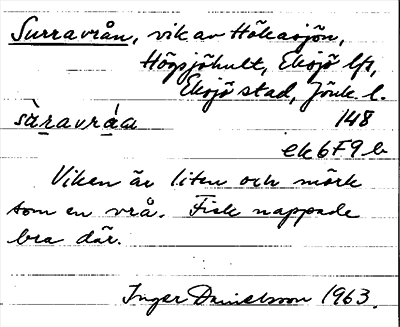 Surravrån, vik av Hökasjön,
Högsjöhult, Eksjö lfs,
Eksjö stad, Jönk l.
sàravráa 148
ek 6F9b
Viken är liten och mörk
som en vrå. Fisk nappade
bra där.
Inger Danielsson 1963.